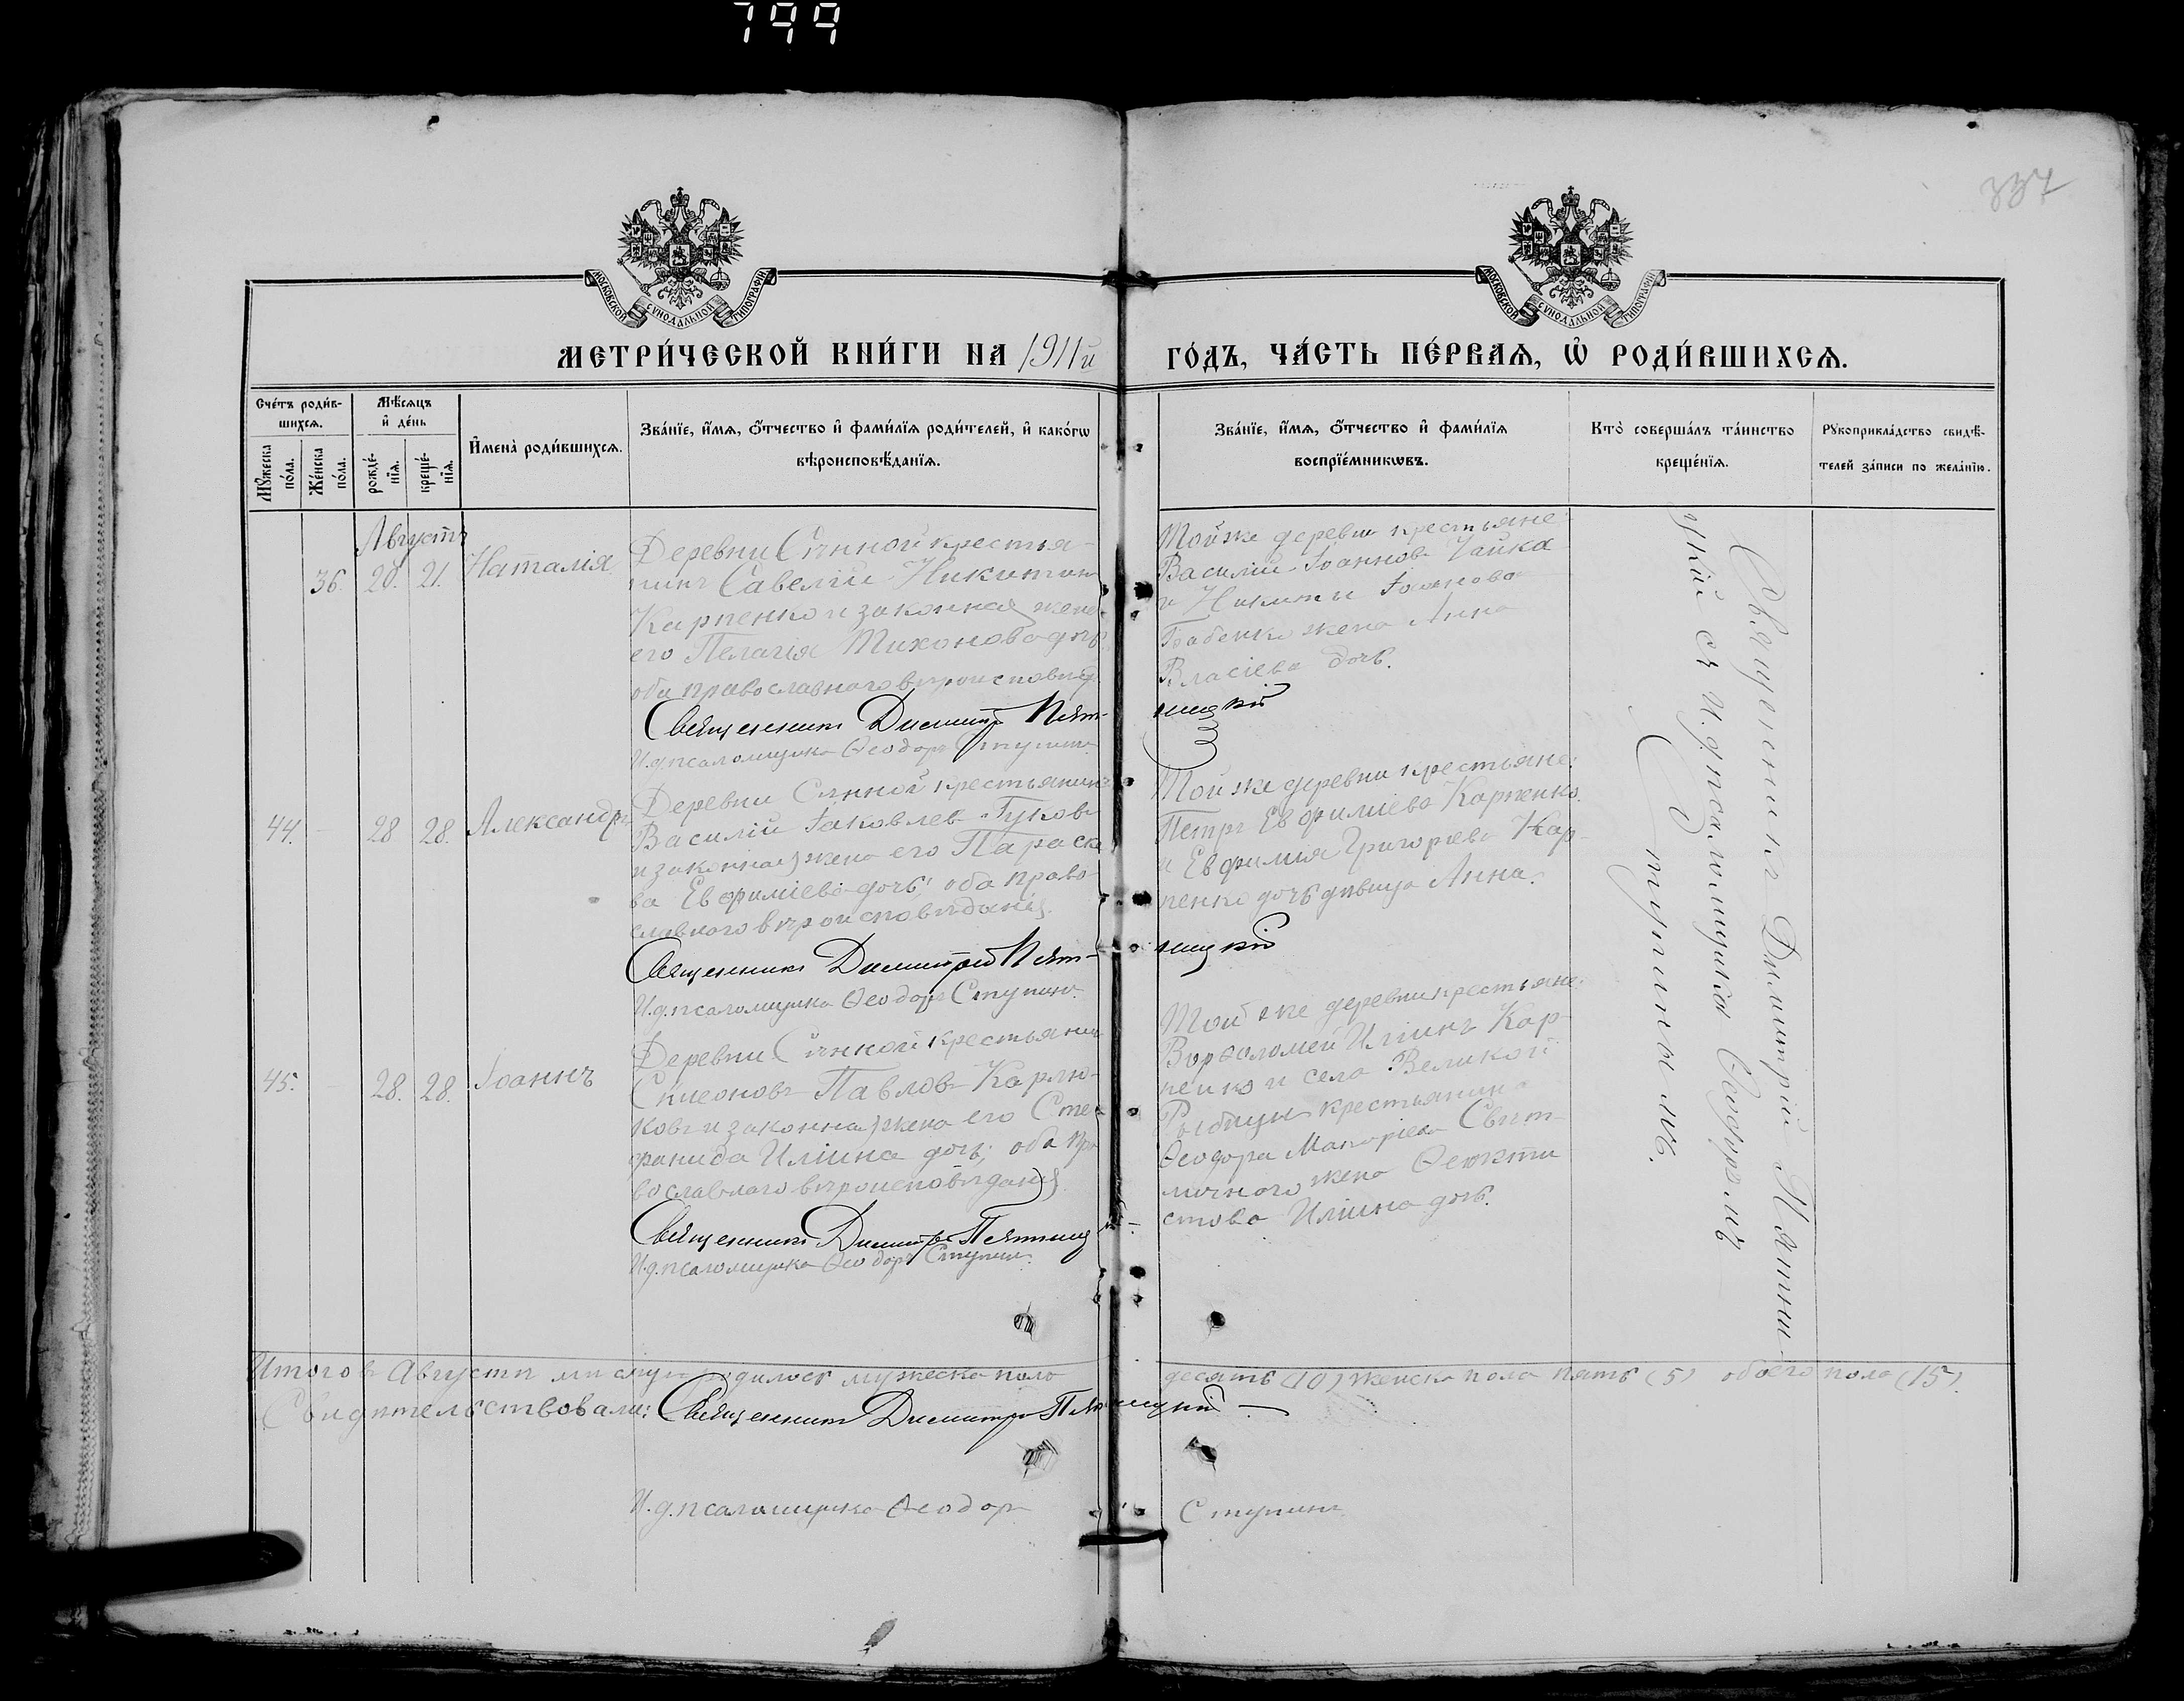 799
337
МОСКОВСКОЙ СѴНОДАЛЬНОЙ ТИПОГРАФІИ
МОСКОВСКОЙ СѴНОДАЛЬНОЙ ТИПОГРАФІИ
МЕТРИ́ЧЕСКОЙ КНИ́ГИ НА 1911й ГО́ДЪ, ЧА́СТЬ ПЕ́РВАѦ, Ѡ҆ РОДИ́ВШИХСѦ.
Сче́тъ роди́в-
шихсѧ.
Мꙋ́жеска по́ла.
Же́нска по́ла.
Мѣ́сѧцъ
и҆ де́нь
рожде́-
нїѧ.
креще́-
нїѧ.
И҆мена̀ роди́вшихсѧ.
Зва́нїе, и҆́мѧ, ѻ҆́тчество и҆ фами́лїѧ роди́телей, и҆ како́гѡ
вѣроисповѣ́данїѧ.
Зва́нїе, и҆́мѧ, ѻ҆́тчество и҆ фами́лїѧ
воспрїе́мникѡвъ.
Кто̀ соверша́лъ та́инство
креще́нїѧ.
Рꙋкоприкла́дство свидѣ́-
телей за́писи по жела́нїю.
Августъ
36. 20. 21. Наталія
Деревни Сѣнной крестья-
нинъ Савелій Никитин
Карпенко и законная жена
его Пелагія Тихонова дочь
оба православнаго вѣроисповѣд.
Священникъ Димитрій Пятницкій
И.д.псаломщика Ѳеодоръ Ступинъ
Тойже деревни крестьяне:
Василій Іоаннов Чайка
и Никиты Іоаннова
Бабенко жена Анна
Власіева дочь.
44. 28 28. Александръ
Деревни Сѣнной крестьянинъ
Василій Іаковлев Гуковъ
и законная жена его Параске
ва Евфиміева дочь; оба право
славнаго вѣроисповѣданія.
Священникъ Димитрій Пятницкій
И.д.псаломщика Ѳеодоръ Ступинъ.
Той же деревни крестьяне:
Петръ Евфиміевъ Карпенко
и Евфимія Григорьева Кар-
пенко дочь дѣвица Анна.
45. 28. 28. Іоаннъ
Деревни Сѣнной крестьянинъ
Симеоновъ Павловъ Карлю-
ковъ и законная жена его Сте-
фанида Иліина дочь; оба пра
вославнаго вѣроисповѣданія
Священникъ Димитрій Пятниц
И.д.псаломщика Ѳеодоръ Ступинъ.
Той же деревни крестьяне:
Варѳоломей Иліинъ Кар-
пенко и села Великой
Рыбицы крестьянина
Ѳеодора Макаріева Свѣт-
личного жена Ѳеокти
стова Иліина дочь.
Священникъ Димитрій Пятниц-
кій съ и.д.псаломщика Ѳеодоромъ
Ступинымъ.
Итого въ Августѣ мѣсяцѣ родилось мужеска пола десять (10) женска пола пять (5) обоего пола (15).
Свидѣтельствовали: Священникъ Димитрій Пятницкій
И.д.псаломщика Ѳеодоръ Ступинъ